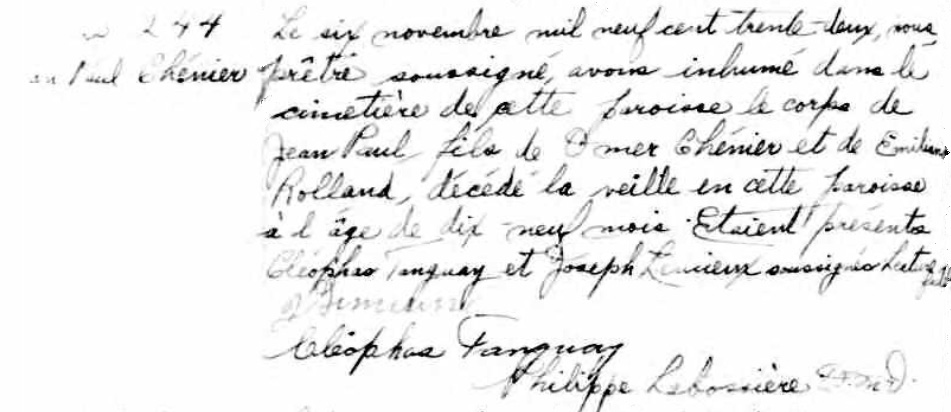 244
Paul Chénier
Le six novembre mil neuf cent trente-deux, nous,
prêtre soussigné, avons inhumé dans le
cimetière de cette paroisse le corps de
Jean Paul, fils de Omer Chénier et de
Rolland, décédé la veille en cette paroisse
à l'âge de dix-neuf mois. Etaient présents
Cléophas Tanguay et Joseph Lemieux soussignés Lecture
Cléophas Tanguay
Philippe Labossière